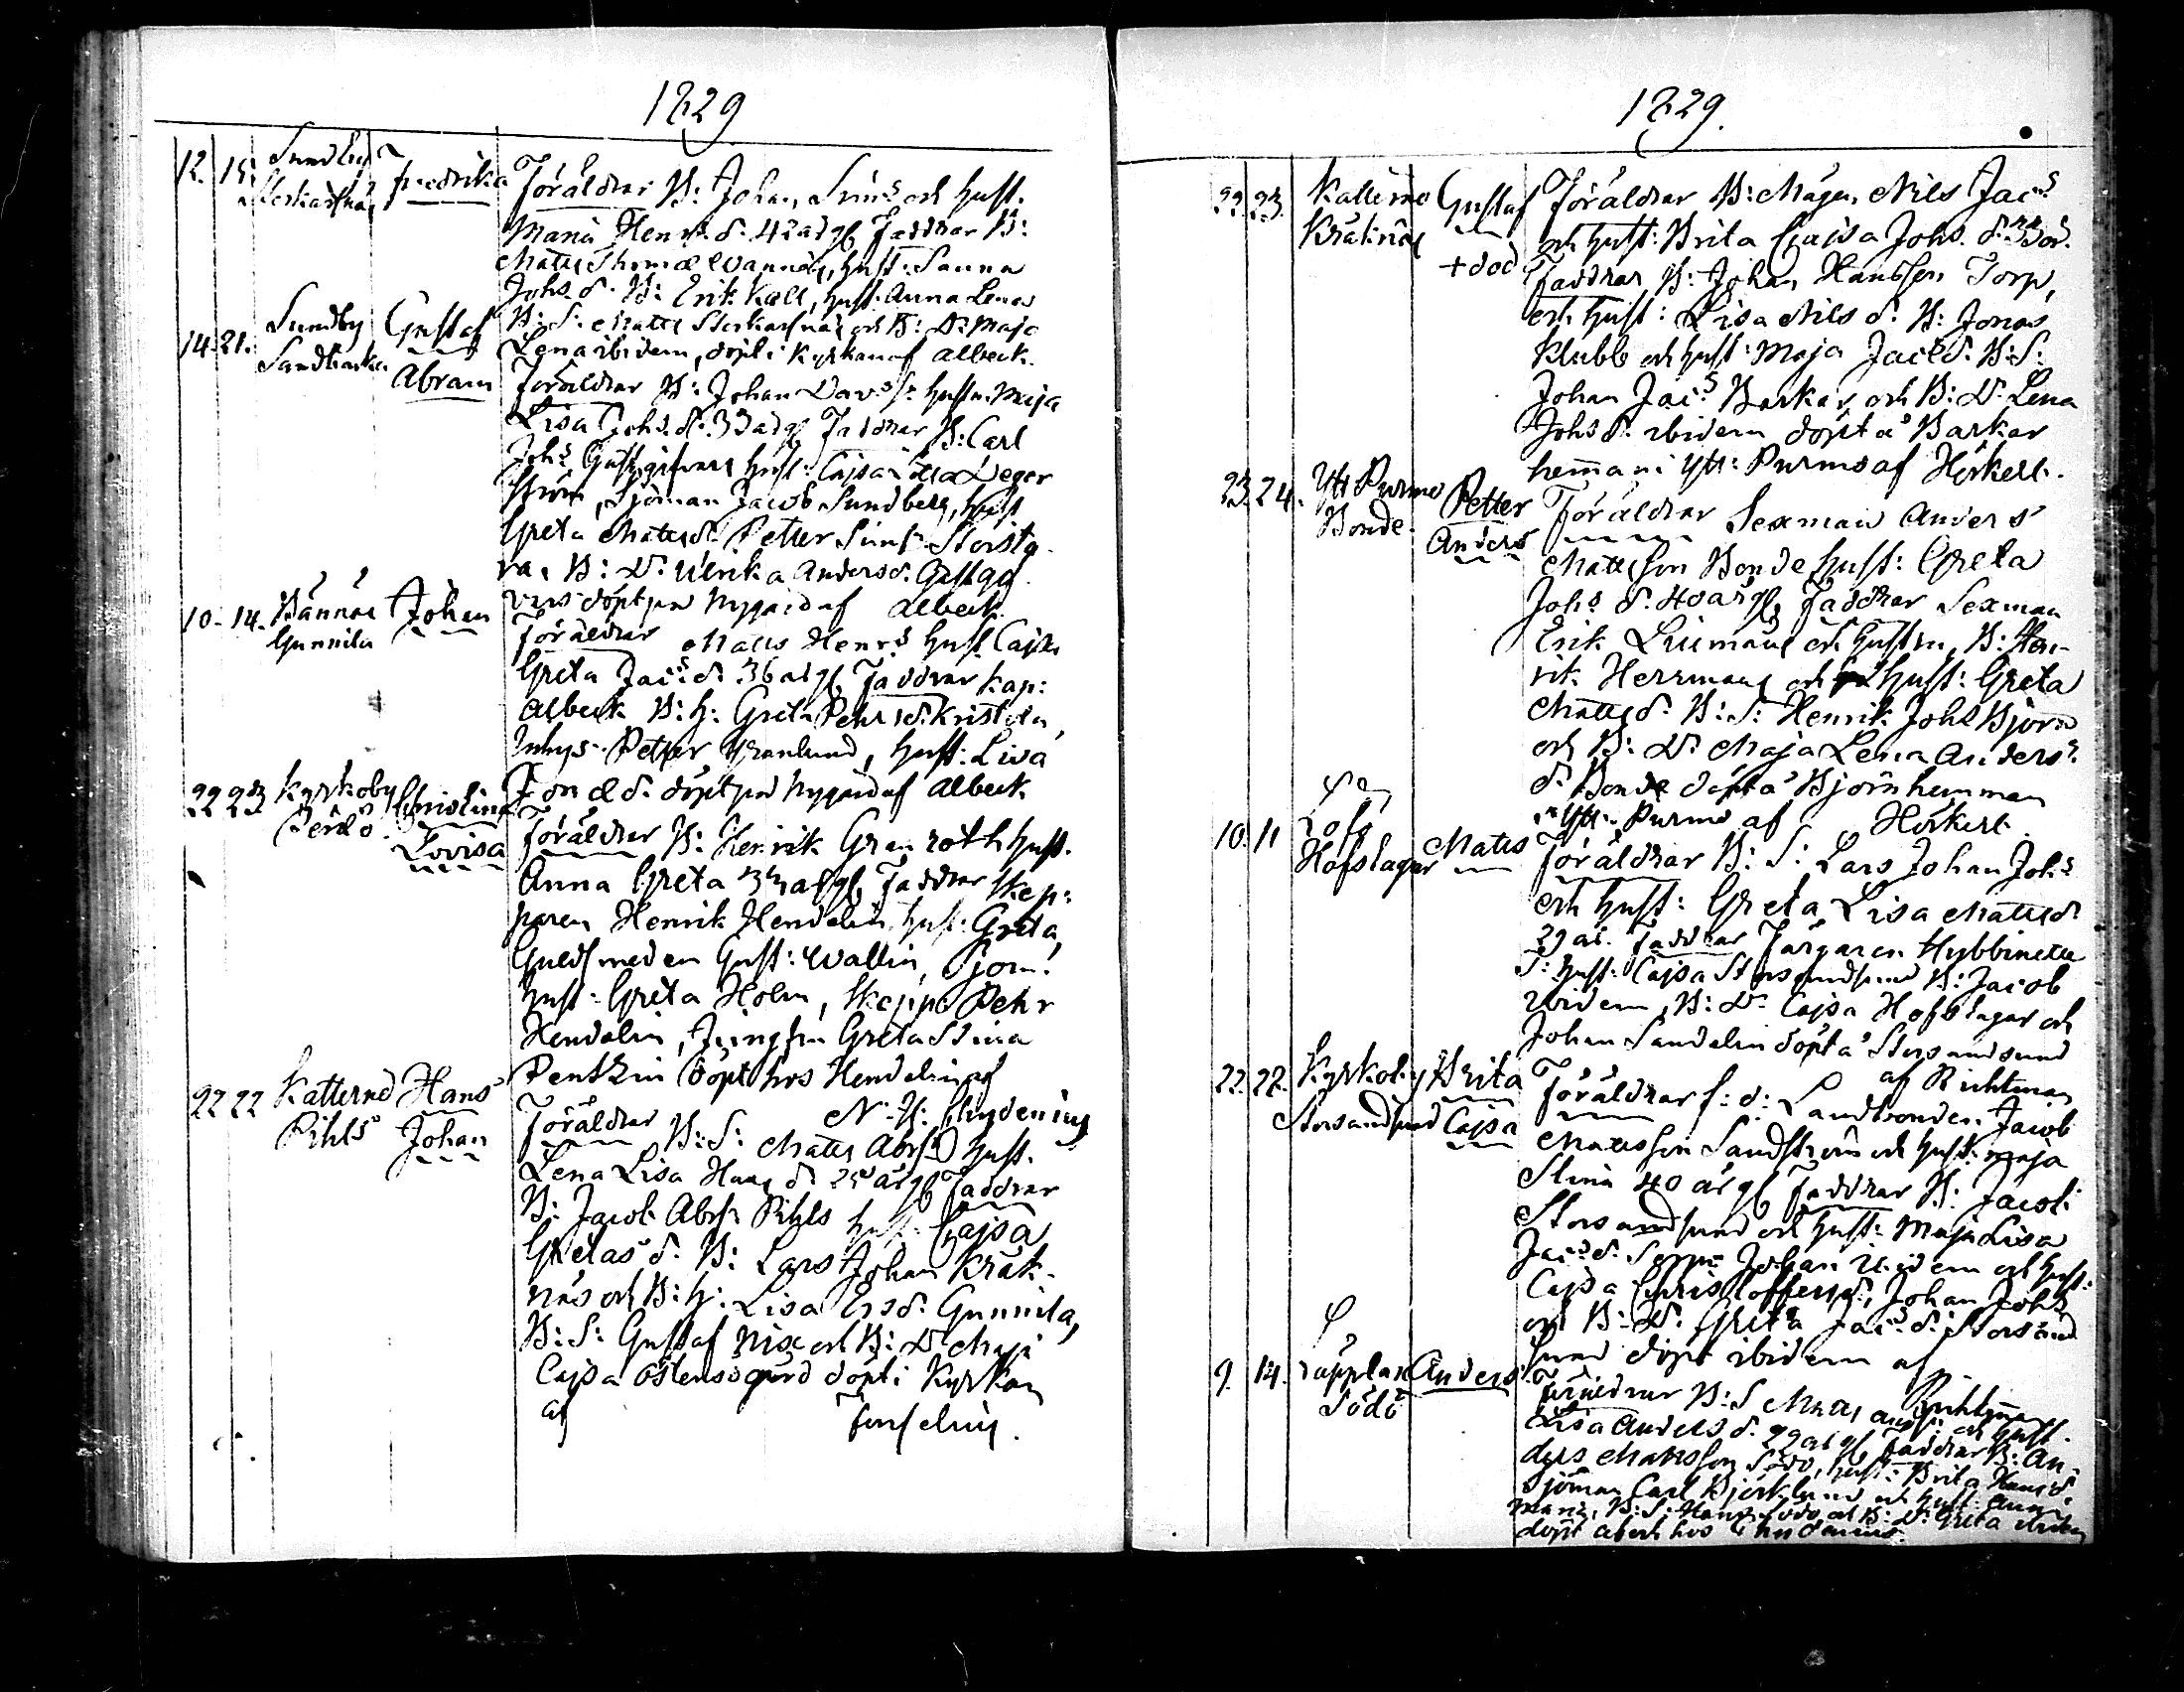 1829
12. 15. Sundby Fredrika Föräldrar B: Johan Sims och hust.
Storkarsnäs
Maria Henr. d. 42 årg. Faddrar B:
Matts Thomæ hust: Sanna
Johs. d. B: Erik Käll, hust. Anna Lena
B: S: Matts Storkarsnäs och B: D: Maja
Lena ibidem, döpt i Kyrkan af Albeck.
14. 21. Sundby Gustaf
Sandbacka Abram Föräldrar B: Johan hustr. Maja
Lisa Johs. d. 33 årg. Faddrar B: Carl
Johs Gästgifvars hust: Cajsa
ström, Sjöman Jacob Sundberg, hust
Greta Mattsd. Petter Sims.
B: D: Ulrika Andersd. Gästgif
vars döpt på Nygård af Albeck.
10. 14. Bännäs Johan Föräldrar Matts Henrs hust. Cajsa
Gunnila
Greta Jacs d. 36 årg. Faddrar Kap:
Albeck B: h: Greta Pehrs d.
Inhys. Petter Granlund, hust: Lisa
d. döpt på Nygård af Albeck
22 23 Kyrkoby Christina
Lovisa Föräldrar B: Henrik Granroth hust.
Anna Greta 33 årg. Faddrar Skep:
paren Henrik Hendelin, hust: Greta,
Guldsmeden Gust: Wallin, Sjöm:
hust: Greta Holm, Skepp: Pehr
Hendelin, Jungfru Greta Stina
Pentzin döpt hos Hendelin af
N: H: Chydenius
22 22 Katternö Hans Föräldrar B: S: Matts Abrs hust.
Pihls Johan
Lena Lisa Hans d. 25 årg. Faddrar
B: Jacob Abrs. Pihls hust: Cajsa
Gretas d. B: Lars Johan Kråk-
näs och B: h: Lisa Ers d. Gunnila,
B: S: Gustaf Nisæ och B: D: Maja
Cajsa Östensogård döpt i Kyrkan
af Forselius.
1829.
22. 23. Katternö Gustaf Föräldrar B: Mågen Nils Jacs
Kråknäs + död
och hust: Brita Cajsa Johs. d. 33 år.
Faddrar, B: Johan Hansson Torp,
och hust: Lisa Nils d. B: Jonas
Klubb och hust: Maja Jacs d. B: S:
Johan Jacs Barkar och B: D: Lena
Johs d. ibidem döpt å Barkar
hemman i Ytt: Purmo af Herkerts.
23. 24. Ytt Purmo Petter Föräldrar Sexman Anders
Bonde. Anders
Mattsson Bonde hust: Greta
Johs d. 40 årg. Faddrar Sexman
Erik och hustru, B: Hen-
rik Herrmans och hust: Greta
Mattsd. B: S: Henrik Johs Björn
och B: D: Maja Lena Anders
d. Bonde döpt å Björn hemman
i Ytt: Purmo af Herkerts.
10. 11 Lofs Matts Föräldrar B: S: Lars Johan Johs
Hofslagar
och hust: Greta Lisa Mattsd
29 år. Faddrar Färgaren Hybbinette
S: hust: Cajsa Storsandsund B: Jacob
ibidem, B: D: Cajsa Hofslagar och
Johan Sandelin döpt å Storsandsund
af Richtman
22. 22. Kyrkoby Brita Föräldrar f: d: Landbonden Jacob
Storsandsund Cajsa
Mattsson Sandström och hust: Maja
Stina 40 årg. Faddrar B: Jacob
Storsandsund och hust: Maja Lisa
Jacs d. Johan ibidem och hust:
Cajsa Christoffersd, Johan Johs
och B: D: Greta Jacs d: Storsand
sund döpt ibidem af
Richtman
9. 14. Lappfors Anders Föräldrar B: S och hust.
Södö
Lisa Anders d. 22 årg. Faddrar B: An-
ders Mattsson Södö, hust: Brita Hans d.
Sjöman Carl Björklund och hust: Anna
Maria, B: S: Hans Södö och B: D: Greta
döpt hos